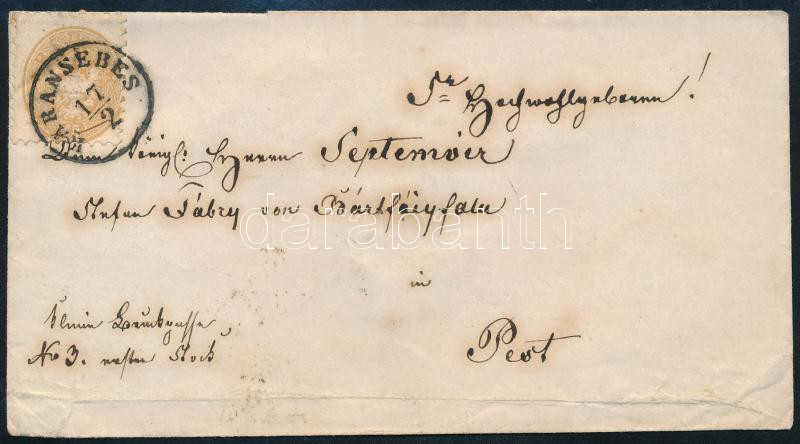 KARANSEBES
17/2
Sr Hochwohlgeboren!
Dem Königl: Herrn Septemvir
Stefan Fábry von Bártfáyfalu
in
Pest
No 3. erster Stock
darabanth